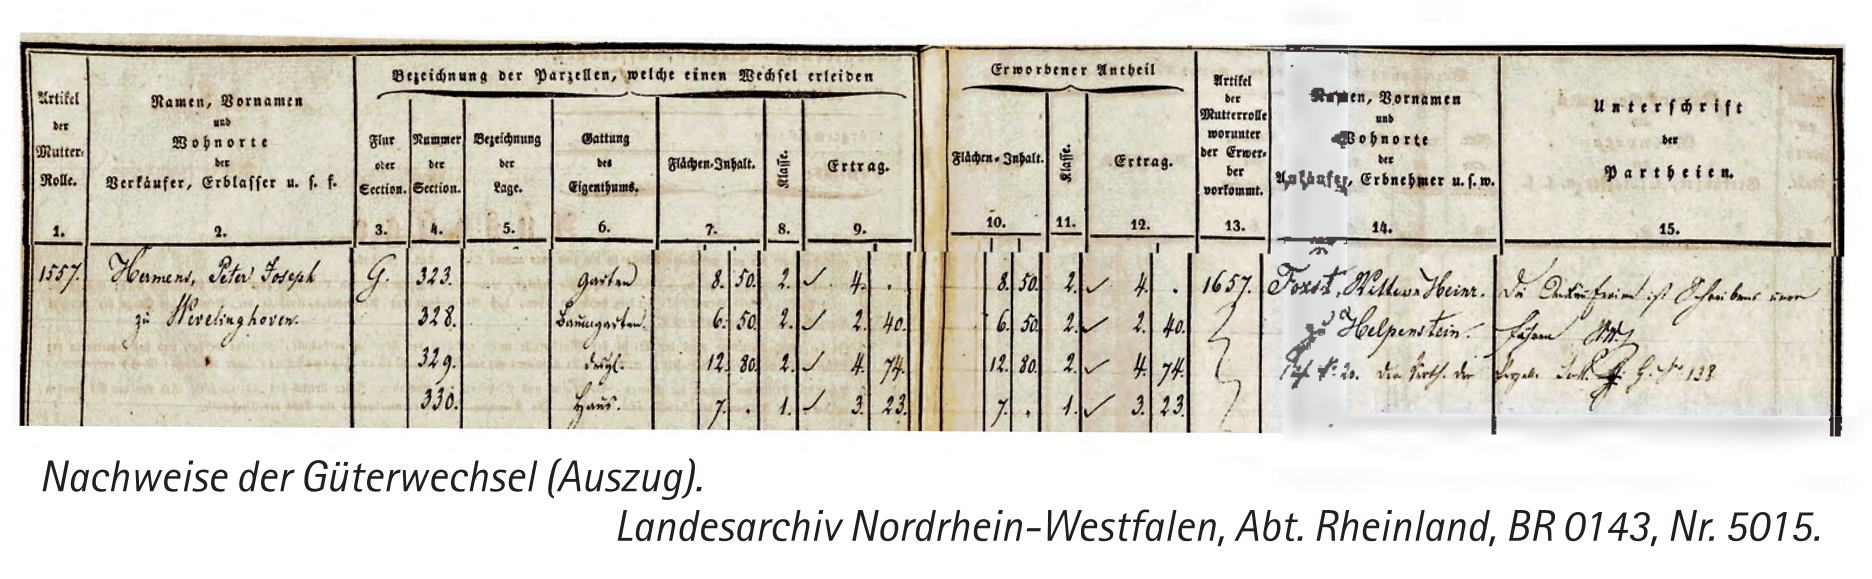 Bezeichnung der Parzellen, welche einen Wechsel erleiden
Erworbener Antheil
Artikel
der
Mutter-
Rolle.
Namen, Vornamen
und
Wohnorte
der
Verkäufer, Erblasser u. s. f.
Flur
oder
Section.
Nummer
der
Section.
Bezeichnung
der
Lage.
Gattung
des
Eigenthums.
Flächen-Inhalt.
Klasse.
Ertrag.
Flächen-Inhalt.
Klasse.
Ertrag.
Artikel
der
Mutterrolle
worunter
der Erwer-
ber
vorkommt.
Namen, Vornamen
und
Wohnorte
der
Ankäufer, Erbnehmer u. s. w.
Unterschrift
der
Partheien.
1. 2. 3. 4. 5. 6. 7. 8. 9. 10. 11. 12. 13. 14. 15.
1557. Hermens, Peter Joseph G. 323. Garten 8. 50. 2. 4. . 8. 50. 2. 4. . 1657. Forst, Wittwe Heinr. Die Ankäuferin ist Schreibens uner
zu Wevelinghoven. 328. Baumgarten. 6. 50. 2. 2. 40. 6. 50. 2. 2. 40. Helpenstein. fahren
329. desgl. 12. 80. 2. 4. 74. 12. 80. 2. 4. 74. 20. 138
330. Haus. 7. . 1. 3. 23. 7. . 1. 3. 23.
Nachweise der Güterwechsel (Auszug).
Landesarchiv Nordrhein-Westfalen, Abt. Rheinland, BR 0143, Nr. 5015.